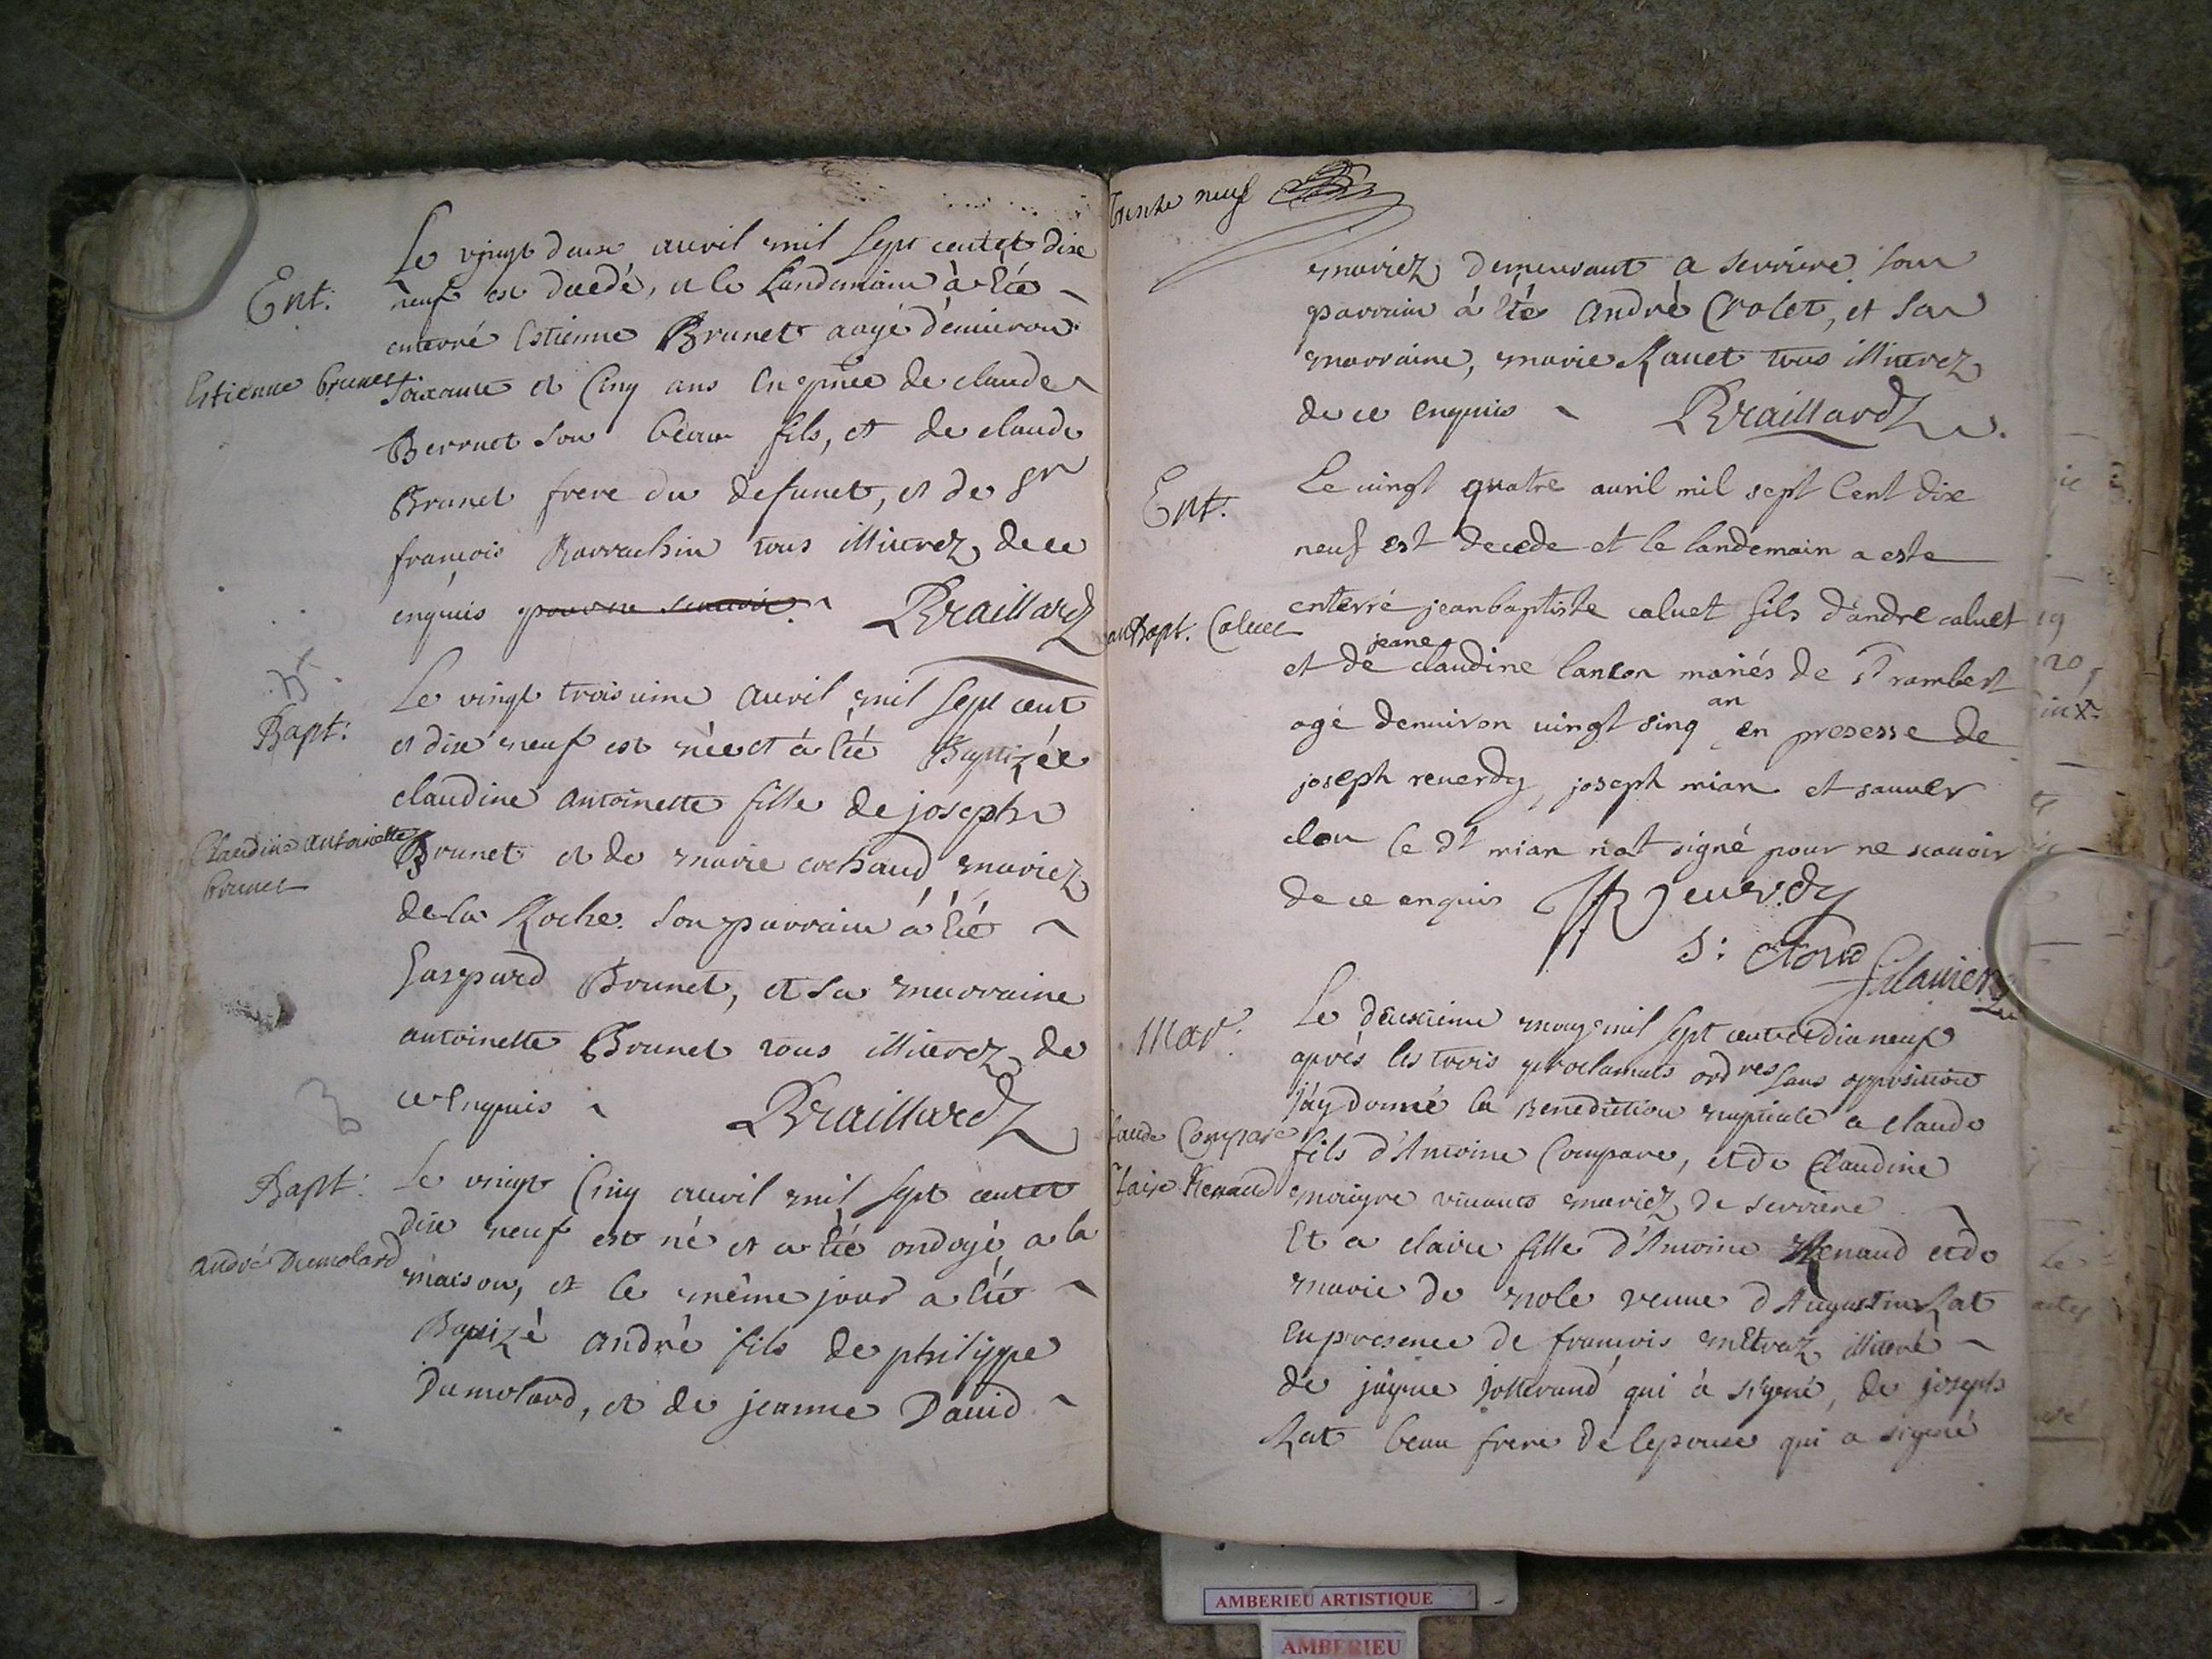 Le vingt deux auvril mil sept cent et dixe
Ent. neuf est decedé, et le Landemain à été
enterré Estienne Brunet aagé d'enuiron
Estienne brunet
Soixante et Cinq ans En pñce de claude
Berruet son beau fils, et de claude
Brunet frere du defunct, et de Sr
françois Ravvachin tous illiterez, de ce
enquis pour ne scauoir. Braillard
Bapt: Le vingt troisieme auvril mil sept cent
et dixe neuf est née et à été Baptizée
claudine antoinette fille de joseph
Claudine antoinette
brunet
Brunet et de marie cochaud mariez
de la Roche. son parrain à été
Gaspard Brunet, et sa marraine
antoinette Brunet tous illiterez, de
ce Enquis Braillard
Bapt: Le vingt Cinq auvril mil sept cent et
dixe neuf est né et a été ondoyé a la
andré Dumolard
maison, et le même jour a été
Baptizé andré fils de philippe
Dumolard, et de jeanne Dauid
trente neuf
mariez demeurant a serriere son
parrain à été andré Crolet, et sa
marraine, marie Rauet tous illiterez
de ce enquis Braillard
Ent. Le uingt quatre auril mil sept Cent dixe
neuf est decede et le landemain a este
an Bapt. Caluet
enterré jeanbaptiste caluet fils d'andre caluet
jeane
et de claudine lancon mariés de St rambert
an
agé denuiron uingt sinq en presesse de
joseph reuerdy, joseph mian et sauuer
clou le dt mian nat signé pour ne scauoir
de ce enquis Reuerdy
S: Clou
Mar. Le deuxieme may mil sept cent et dix neuf
après les trois proclamats ordres sans opposition
j'ay donné la Benediction nuptiale a claude
laude Compare
fils d'Antoine Compare, et de Claudine
Claire Renaud
maigre viuants mariez de serriere
Et a claire fille d'Antoine Renaud et de
marie de mole veuue d'Augustin Rat
En presence de françois metraz illiteré
de jâyme jotterand qui à signé, de joseph
Rat beau frere de lepouse qui a signé
19
20
Le
actes
AMBERIEU ARTISTIQUE
AMBERIEU